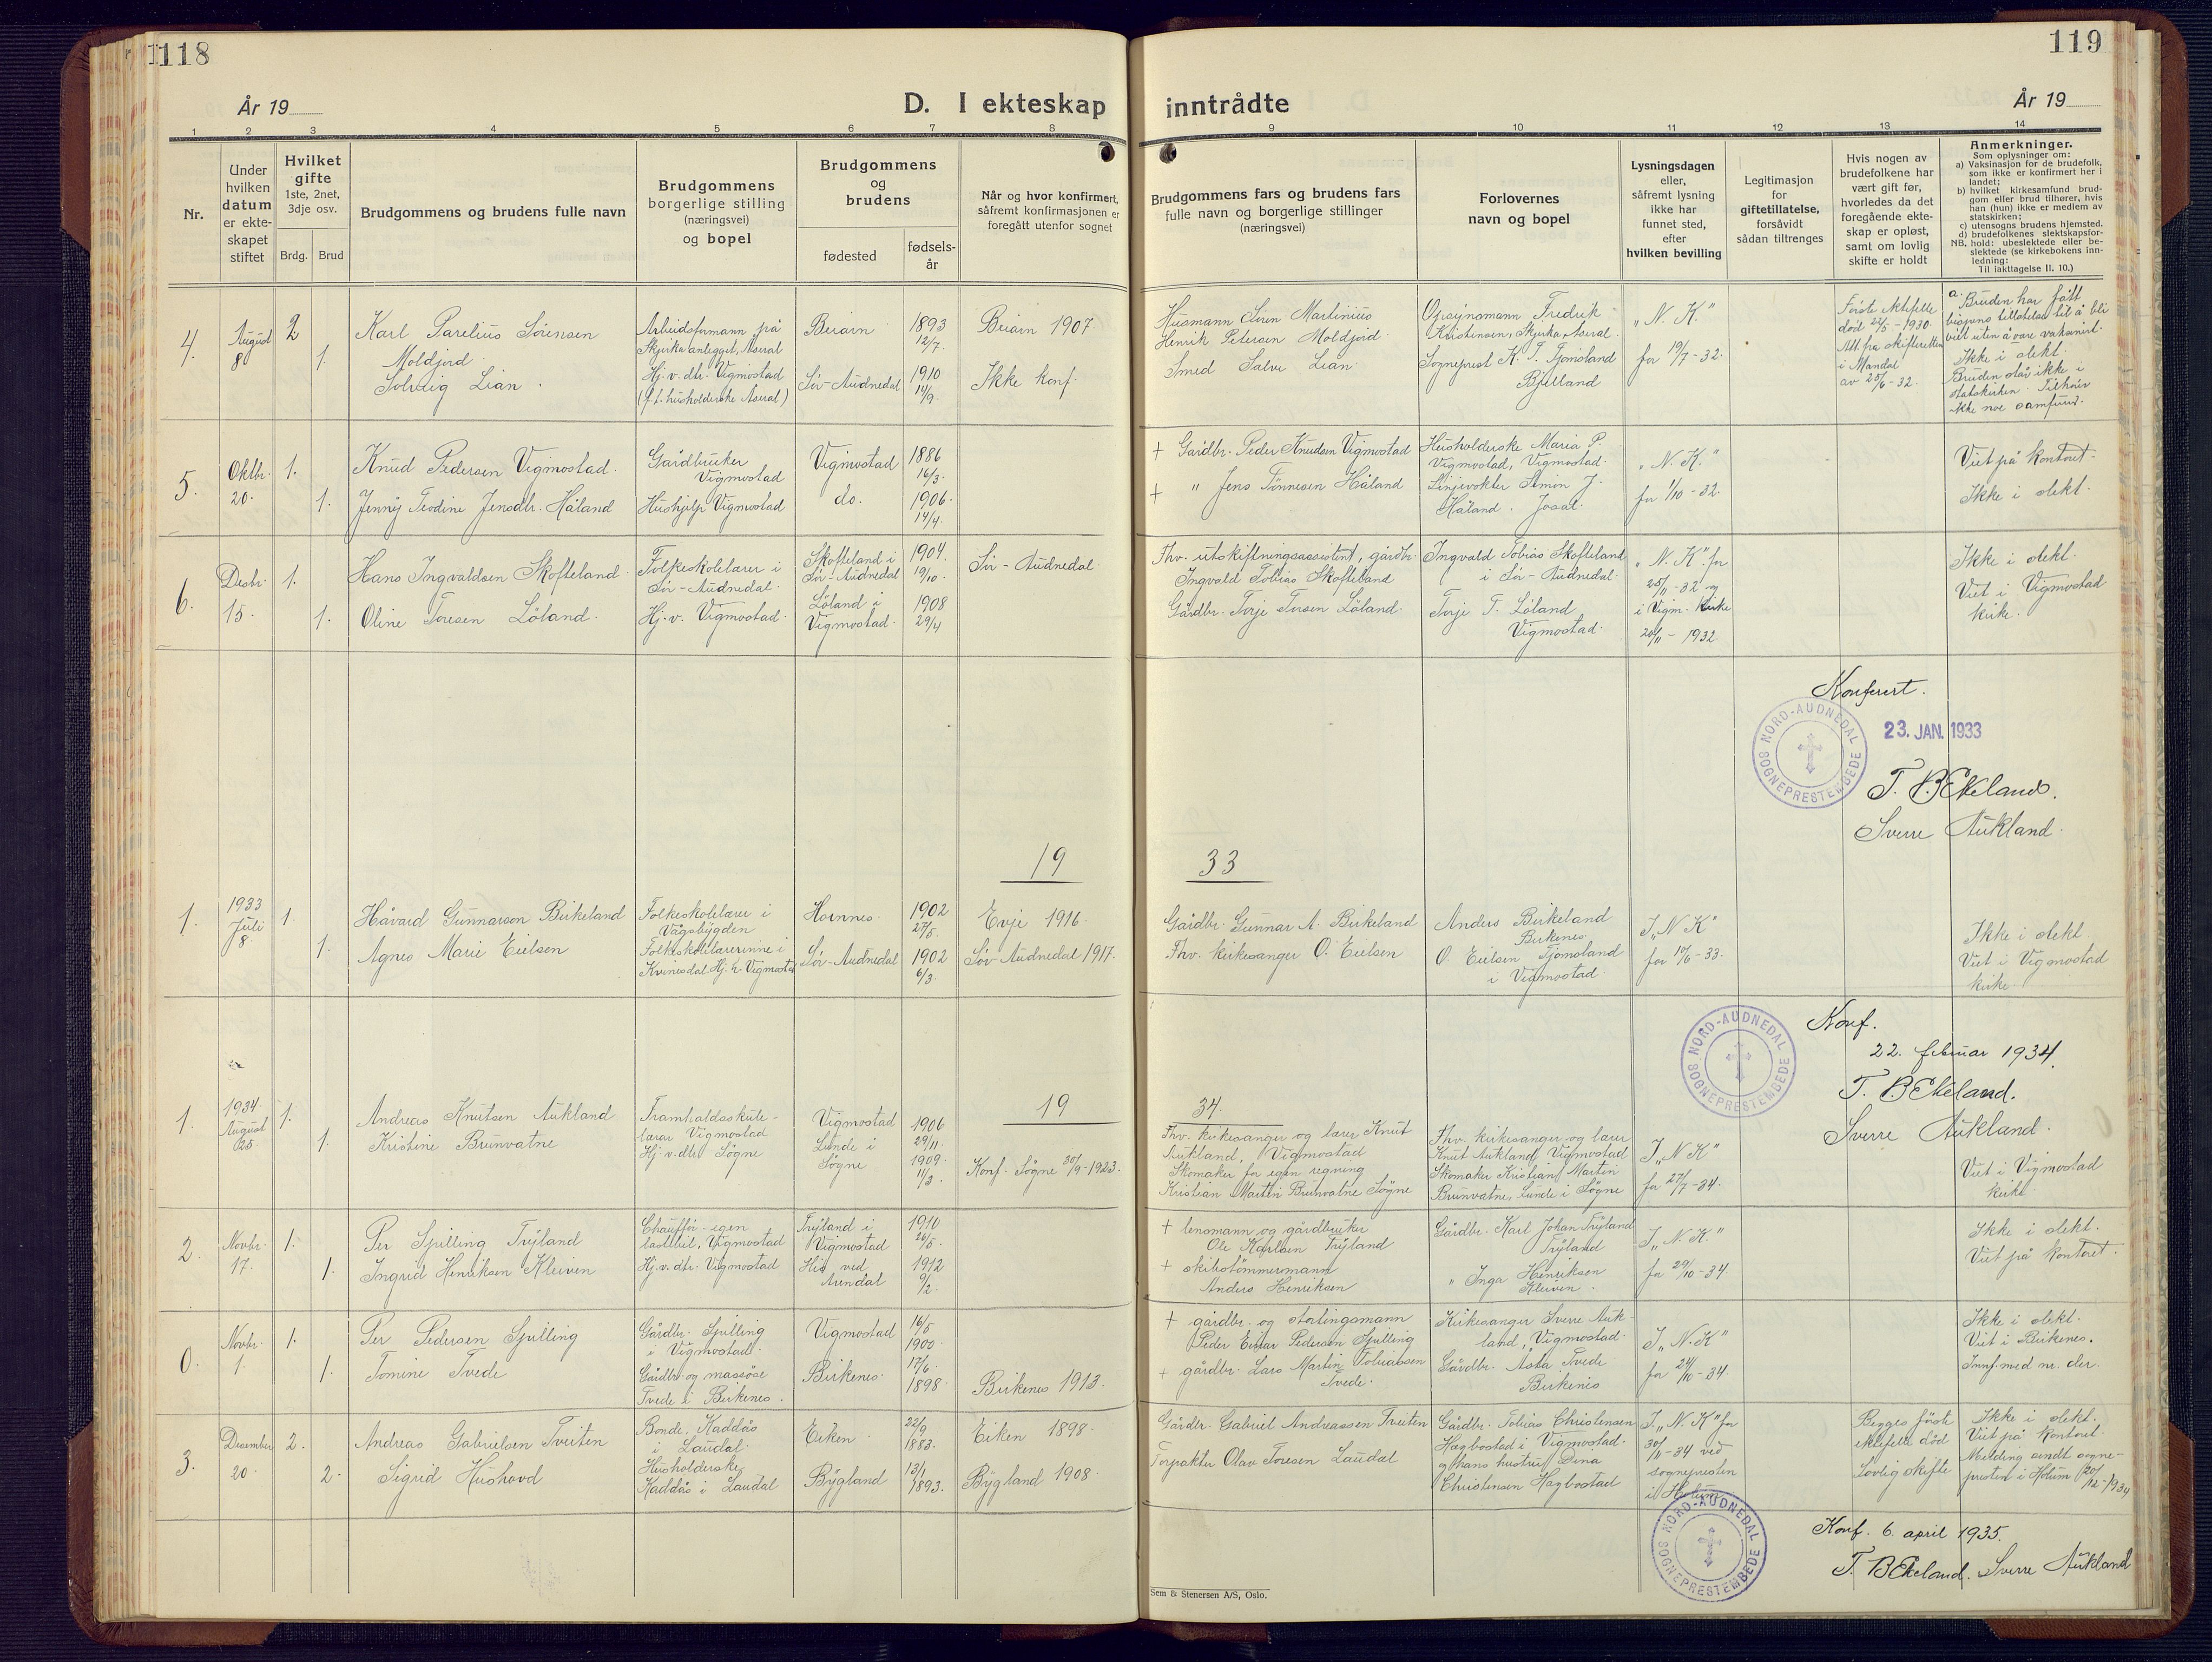 118
År 19
D. I ekteskap
1 2 3 4 5 6 7 8
Nr.
Under hvilken datum er ekteskapet stiftet
Hvilket gifte
1ste, 2net, 3dje osv.
Brdg. Brud
Brudgommens og brudens fulle navn
Brudgommens borgerlige stilling (næringsvei) og bopel
Brudgommens og brudens
fødested
fødselsår
Når og hvor konfirmert, såfremt konfirmasjonen er foregått utenfor sognet
4. August 8 2 1.
Karl Parelius Sörensen
Moldjord
Solveig Lian.
Arbeidsformann på
Skjerka anlegget, Åseral
Hj. v. dtr. Vigmostad
(f.t. husholderske Åseral)
Beiarn 1893 12/7. Beiarn 1907.
Sör-Audnedal 1910 14/9. Ikke konf.
5. Oktbr. 20. 1. 1.
Knud Pedersen Vigmostad.
Jenny Teodine Jensdtr. Håland
Gårdbruker
Vigmostad
Hushjelp Vigmostad
Vigmostad 1886 16/3.
do. 1906. 14/4.
6. Desbr. 15. 1. 1.
Hans Ingvaldsen Skofteland.
Oline Toresen Löland.
Folkeskolelærer i
Sör-Audnedal.
Hj. v. Vigmostad.
Skofteland i
Sör-Audnedal 1904. 19/10. Sör-Audnedal.
Löland i
Vigmostad. 1908 29/4
19
1. 1933 Juli 8. 1. 1.
Håvard Gunnarson Birkeland
Agnes Marie Eielsen
Folkeskolelærer i
Vågsbygden
Folkeskolelærerinne i
Kvinesdal. Hj. h. Vigmostad
Hornnes. 1902 27/5. Evje 1916.
Sör-Audnedal 1902 6/3. Sör-Audnedal 1917.
19
1. 1934 August 25. 1. 1.
Andreas Knutsen Aukland
Kristine Brunvatne
Framhaldsskule-
lærar Vigmostad
Hj. v. dtr. Sögne
Vigmostad 1906 29/11.
Lunde i
Sögne 1909. 11/3. Konf. Sögne 30/9-1923.
2. Novbr. 17. 1. 1.
Per Spilling Tryland
Ingrid Henriksen Kleiven
Chaufför - egen
lastebil, Vigmostad
Hj. v. dtr. Vigmostad
Tryland i
Vigmostad 1910 26/5.
His ved
Arendal 1912 9/2.
0. Novbr. 1. 1. 1.
Per Pedersen Spilling
Tomine Tvede
Gårdbr. Spilling
i Vigmostad.
Gårdbr. og massöse
Tvede i Birkenes.
Vigmostad 16/5 1900
Birkenes. 17/6. 1898 Birkenes 1913.
3. Desember 20. 2. 2.
Andreas Gabrielsen Tveiten
Sigrid Hushovd
Bonde, Kaddås
i Laudal.
Husholderske
Kaddås i Laudal
Eiken. 22/9 1883. Eiken 1898.
Bygland 13/1 1893. Bygland 1908.
119
År 19
inntrådte
9 10 11 12 13 14
Brudgommens fars og brudens fars
fulle navn og borgerlige stillinger
(næringsvei)
Forlovernes
navn og bopel
Lysningsdagen eller, såfremt lysning ikke har funnet sted, efter hvilken bevilling
Legitimasjon for giftetillatelse, forsåvidt sådan tiltrenges
Hvis nogen av brudefolkene har vært gift før, hvorledes da det foregående ekteskap er opløst, samt om lovlig skifte er holdt
Anmerkninger.
Som oplysninger om:
a) Vaksinasjon for de brudefolk, som ikke er konfirmert her i landet;
b) hvilket kirkesamfund brudgom eller brud tilhører, hvis han (hun) ikke er medlem av statskirken;
c) utensogns brudens hjemsted.
d) brudefolkenes slektskapsforhold: ubeslektede eller beslektede (se kirkebokens innledning:
NB.
Til iakttagelse II. 10.)
Husmann Sören Martinius
Henrik Petersen Moldjord.
Smed Salve Lian
Opsynsmann Fredrik
Kristensen, Skjerka, Åseral.
Sogneprest K. T. Tjomsland
Bjelland
"N. K."
for 19/7-32.
Förste ektefelle
död 22/5-1930.
Att. fra skifteretten
i Mandal
av 25/6-32.
a. Bruden har fått
bispens tillatelse til å bli
viet uten å være vaksinert.
Ikke i slekt.
Bruden står ikke i
statskirken. Tilhöir
ikke noe samfund.
+ Gårdbr. Peder Knudsen Vigmostad
+ " Jens Tönnesen Håland
Husholderske Maria P.
Vigmostad, Vigmostad.
Linjevokter Simon J.
Håland.
"N. K."
for 1/10-32.
Viet på kontoret.
Ikke i slekt.
Fhv. utskiftningsassistent, gårdbr.
Ingvald Tobias Skofteland
Gårdbr. Torje Torsen Löland.
Ingvald Tobias Skofteland
i Sör-Audnedal.
Torje T. Löland
Vigmostad.
"N. K." for
25/11-32 og
i Vigm. kirke
20/11-1932
Ikke i slekt.
Viet i Vigmostad
kirke.
Konferert.
NORD-AUDNEDAL SOGNEPRESTEMBEDE
23. JAN. 1933
T. B Ekeland.
Sverre Aukland.
33
Gårdbr. Gunnar A. Birkeland
Fhv. kirkesanger O. Eielsen
Anders Birkeland
Birkenes
O. Eielsen Tjomsland
i Vigmostad.
I "N. K"
for 10/6-33.
Ikke i slekt.
Viet i Vigmostad
kirke.
NORD-AUDNEDAL SOGNEPRESTEMBEDE
Konf.
22. februar 1934.
T. B Ekeland.
Sverre Aukland.
34.
Fhv. kirkesanger og lærer Knut
Aukland, Vigmostad
Skomaker for egen regning
Kristian Martin Brunvatne Sögne
Fhv. kirkesanger og lærer
Knut Aukland, Vigmostad
Skomaker Kristian Martin
Brunvatne, Lunde i Sögne
I "N. K"
for 27/7-34.
Viet i Vigmostad
kirke.
+ lensmann og gårdbruker
Ole Karlsen Tryland
+ skibstömmermann
Anders Henriksen
Gårdbr. Karl Johan Tryland
Tryland
" Inga Henriksen
Kleiven.
I "N. K."
for 29/10-34.
Ikke i slekt.
Viet på kontoret.
+ gårdbr. og stortingsmann
Peder Einar Pedersen Spilling
+ gårdbr. Lars Martin Tobiassen
Tvede.
Kirkesanger Sverre Auk-
land, Vigmostad.
Gårdbr. Åsta Tvede
Birkenes
I "N. K"
for 24/10-34.
Ikke i slekt.
Viet i Birkenes.
Innf. med nr. der.
Gårdbr. Gabriel Andreassen Tveiten
Forpakter Olav Toresen Laudal
Gårdbr. Tobias Christensen
Hægbostad i Vigmostad.
og hans hustru Dina
Christensen Hægbostad
I "N. K" for
30/11-34 ved
sognepresten
i Holum
Begges förste
ektefelle död
Lovlig skifte
Ikke i slekt.
Viet på kontoret.
Melding sendt sogne-
presten i Holum 20/12-1934
NORD-AUDNEDAL SOGNEPRESTEMBEDE
Konf. 6. april 1935.
T. B Ekeland. Sverre Aukland
Sem & Stenersen A/S, Oslo.